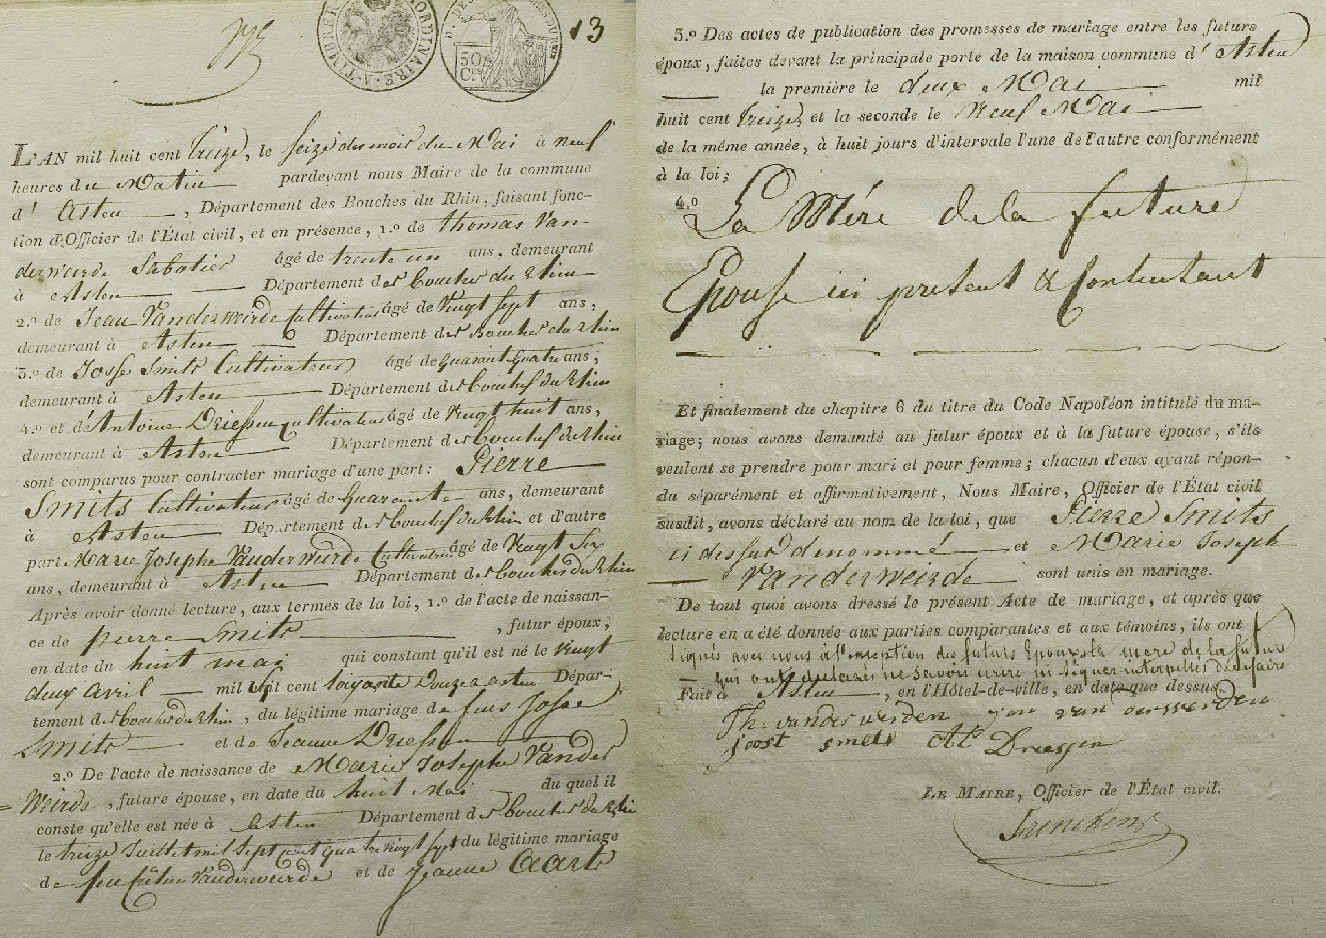 13
TIMBRE EXTRAORDINAIRE
50 Ct.
L'AN mil huit cent treize, le seize du mois du Mai à neuf
heures du Matin pardevant nous Maire de la commune
d' Asten, Département des Bouches du Rhin, faisant fonc-
tion d'Officier de l'État civil, et en présence, 1.º de thomas Van-
derweirde Sabotier âgé de trente un ans, demeurant
à Asten Département des bouches du Rhin
2.º de Jean Vanderweirde Cultivateur âgé de Vingt sept ans,
demeurant à Asten Département des Bouches du Rhin
3.º de Josse Smits Cultivateur âgé de quarant quatre ans;
demeurant à Asten Département des bouches du Rhin
4.º et de Antoine Driessen Cultivateur âgé de Vingt huit ans,
demeurant à Asten Département des bouches du Rhin
sont comparus pour contracter mariage d'une part: Pierre
Smits Cultivateur âgé de Quarante ans, demeurant
à Asten Département des bouches du Rhin et d'autre
part Marie Josephe Vanderweirde Cultivatr. âgé de Vingt Six
ans, demeurant à Asten Département des bouches du Rhin
Après avoir donné lecture, aux termes de la loi, 1.º de l'acte de naissan-
ce de pierre Smits, futur époux;
en date du huit mai qui constant qu'il est né le Vingt
deux avril mil sept cent soixante Douze a asten Dépar-
tement des bouches du Rhin, du légitime mariage de feus Josse
Smits et de Jeanne Driessen
2.º De l'acte de naissance de Marie Josephe Vander
= Weirde, future épouse, en date du huit Mai du quel il
conste qu'elle est née à Asten Département des bouches du Rhin
le treize Juillet mil sept cent quatre vingt sept du légitime mariage
de feu Vanderweirde et de Jeanne Aarts
3.º Des actes de publication des promesses de mariage entre les futurs
époux, faites devant la principale porte de la maison commune d' Asten
la première le deux Mai mil
huit cent treize, et la seconde le Neuf Mai
de la même année, à huit jours d'intervale l'une de l'autre conformément
à la loi;
4.º
La Mére de la future
Epouse ici présent & Consentant
Et finalement du chapitre 6 du titre du Code Napoléon intitulé du ma-
riage; nous avons demandé au futur époux et à la future épouse, s'ils
veulent se prendre pour mari et pour femme; chacun d'eux ayant répon-
du séparément et affirmativement, Nous Maire, Officier de l'État civil
susdit, avons déclaré au nom de la loi, que Pierre Smits
ci dessus denommé et Marie Joseph
Vanderweirde sont unis en mariage.
De tout quoi avons dressé le présent Acte de mariage, et après que
lecture en a été donnée aux parties comparantes et aux témoins, ils ont
signés avec nous à l'exception des futurs Epoux & la mere de la future
qui ont declarés ne savoir écrire ni signer interpellés de le faire
Fait à Asten, en l'Hôtel-de-ville, en date que dessus.
Th: vanderweerden jan van derweerden
joost smets At Driessen
LE MAIRE, Officier de l'État civil.